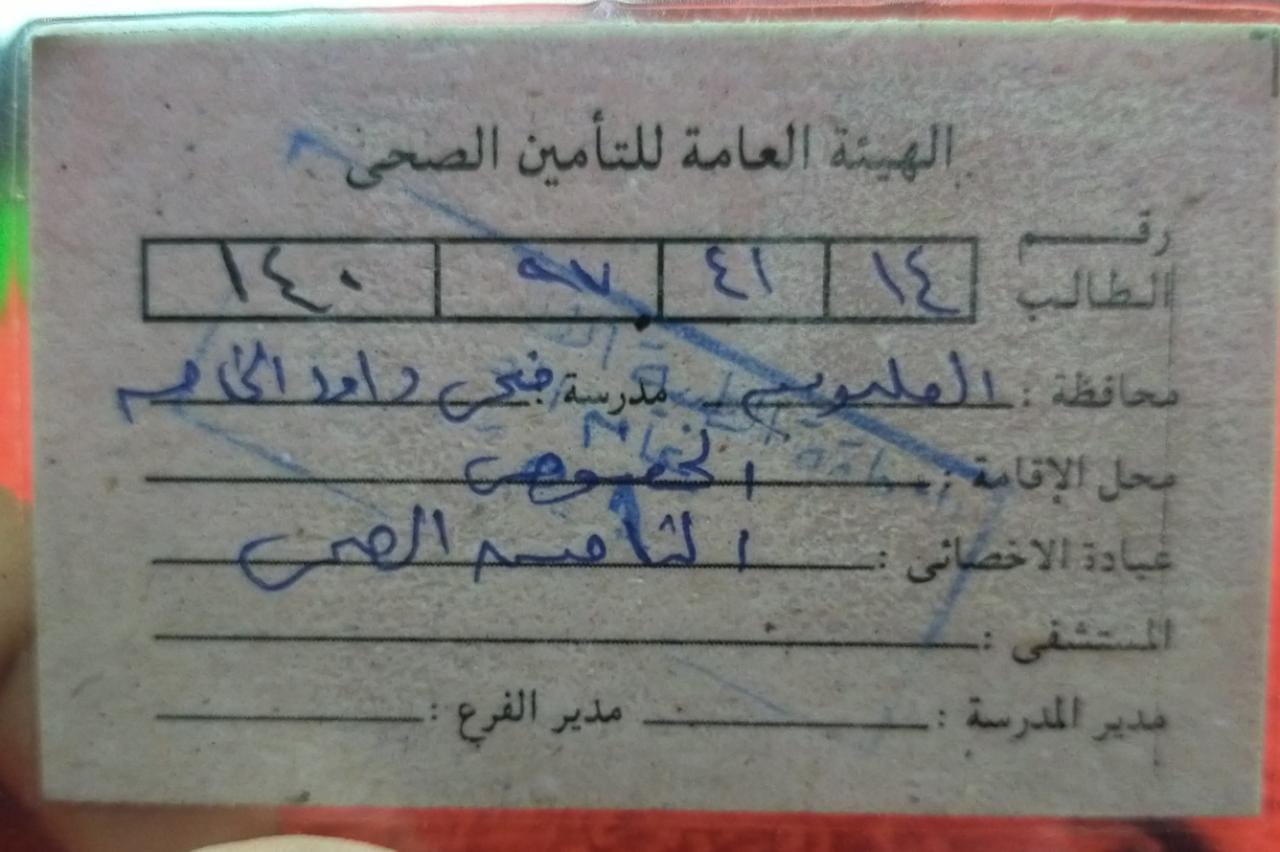 الهيئة العامة للتأمين الصحى
رقم الطالب ١٤ ٤١ ٩٧ ١٤٠
محافظة : القليوبيه مدرسة : فتحى داود الخاصه
محل الإقامة : الخصوص
عيادة الاخصائى : التامين الصحى
المستشفى :
مدير المدرسة : مدير الفرع :